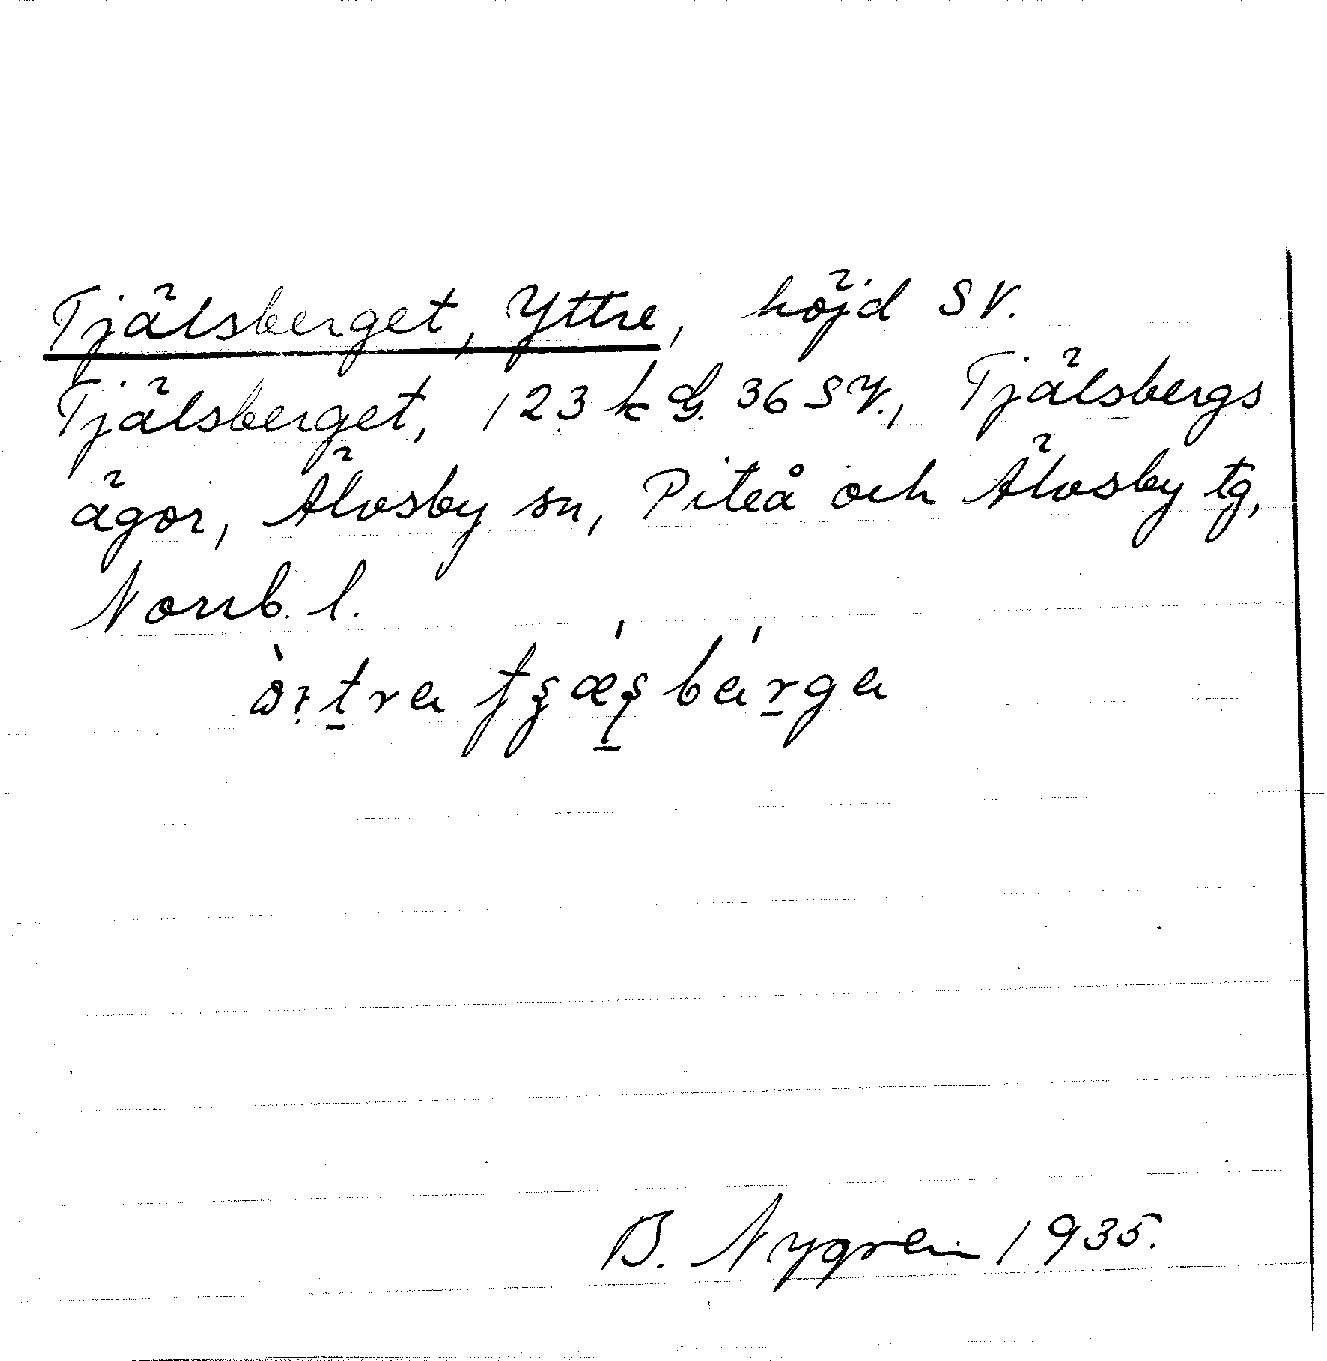 Tjälsberget, Yttre, höjd SV.
Tjälsberget, 123 k G. 36 SV., Tjälsbergs
ägor, Älvsby sn, Piteå och Älvsby tg,
Norrb. l.
B. Nygren 1935.